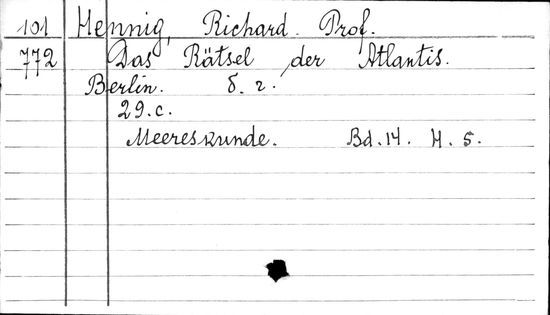 101 Hennig, Richard. Prof.
772 Das Rätsel der Atlantis.
Berlin. б. г.
29.c.
Meereskunde. Bd. 14. H. 5.